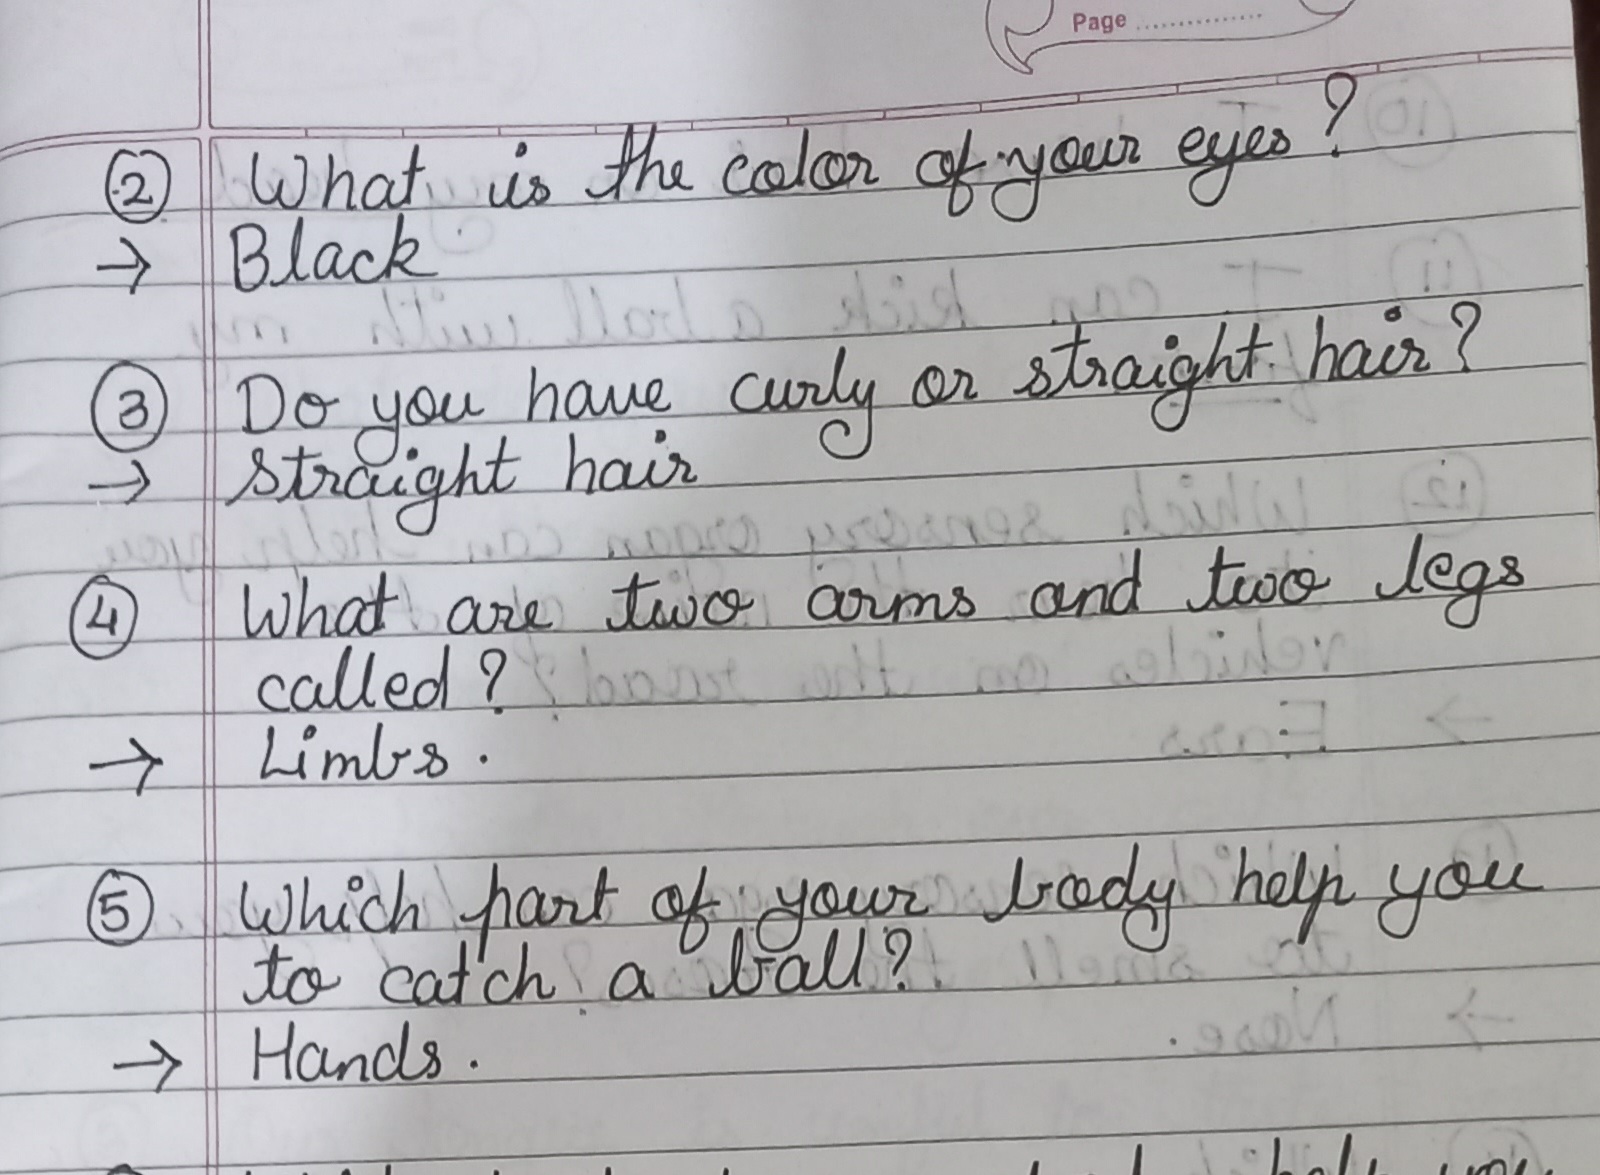 Page ...............
② What is the color of your eyes?
→ Black
③ Do you have curly or straight hair?
→ straight hair
④ What are two arms and two legs
called?
→ Limbs.
⑤ Which part of your body help you
to catch a ball?
→ Hands.